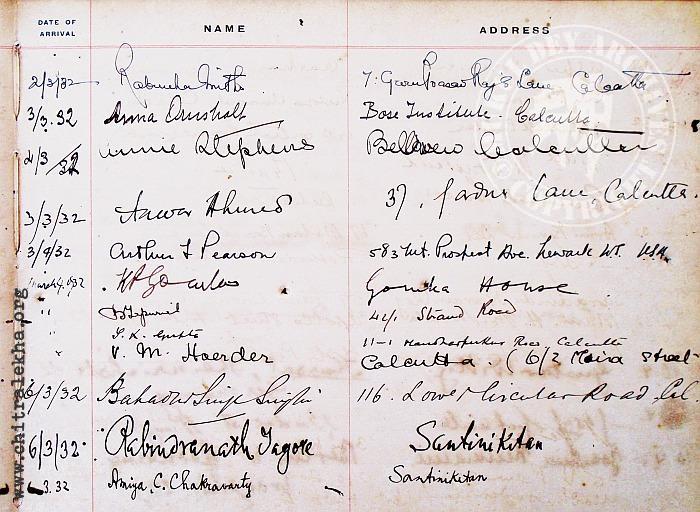 DATE OF ARRIVAL NAME ADDRESS
2/3/32 Smith 7. Lane Calcutta
3/3.32 Anna Ornsholt Bose Institute. Calcutta.
4/3/32 Annie Stephens Bellevue Calcutta
3/3/32 Anwar Ahmed 37, Lane, Calcutta.
3/4/32 Arthur L Pearson 583 Mt. Prospect Ave. Newark U.S.A.
March 4. 1932 House
" 42/1 Strand Road
S. K. Gupta 11-1 Road, Calcutta
" V. M. Haerder Calcutta. (6/2 Moira Street
6/3/32 Bahadur Singh Singhi 116. Lower Circular Road, Cal.
6/3/32. Rabindranath Tagore Santiniketan
6.3.32 Amiya. C. Chakravarty Santiniketan
www.chitralekha.org
DEY ARCHIVES
© COPYRIGHT